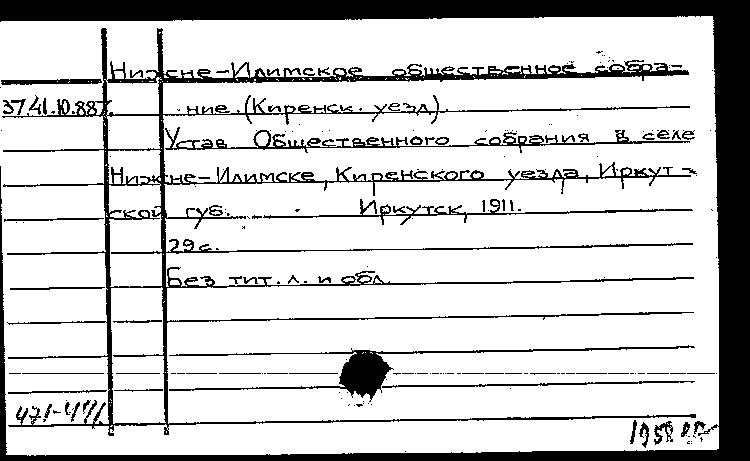 Нижне-Илимское общественное собра-
37.41.10.887.
ние. (Киренск. уезд).
Устав Общественного собрания в селе
Нижне-Илимске, Киренского уезда, Иркут-
ской губ. Иркутск, 1911.
29 с.
Без тит. л. и обл.
471-471